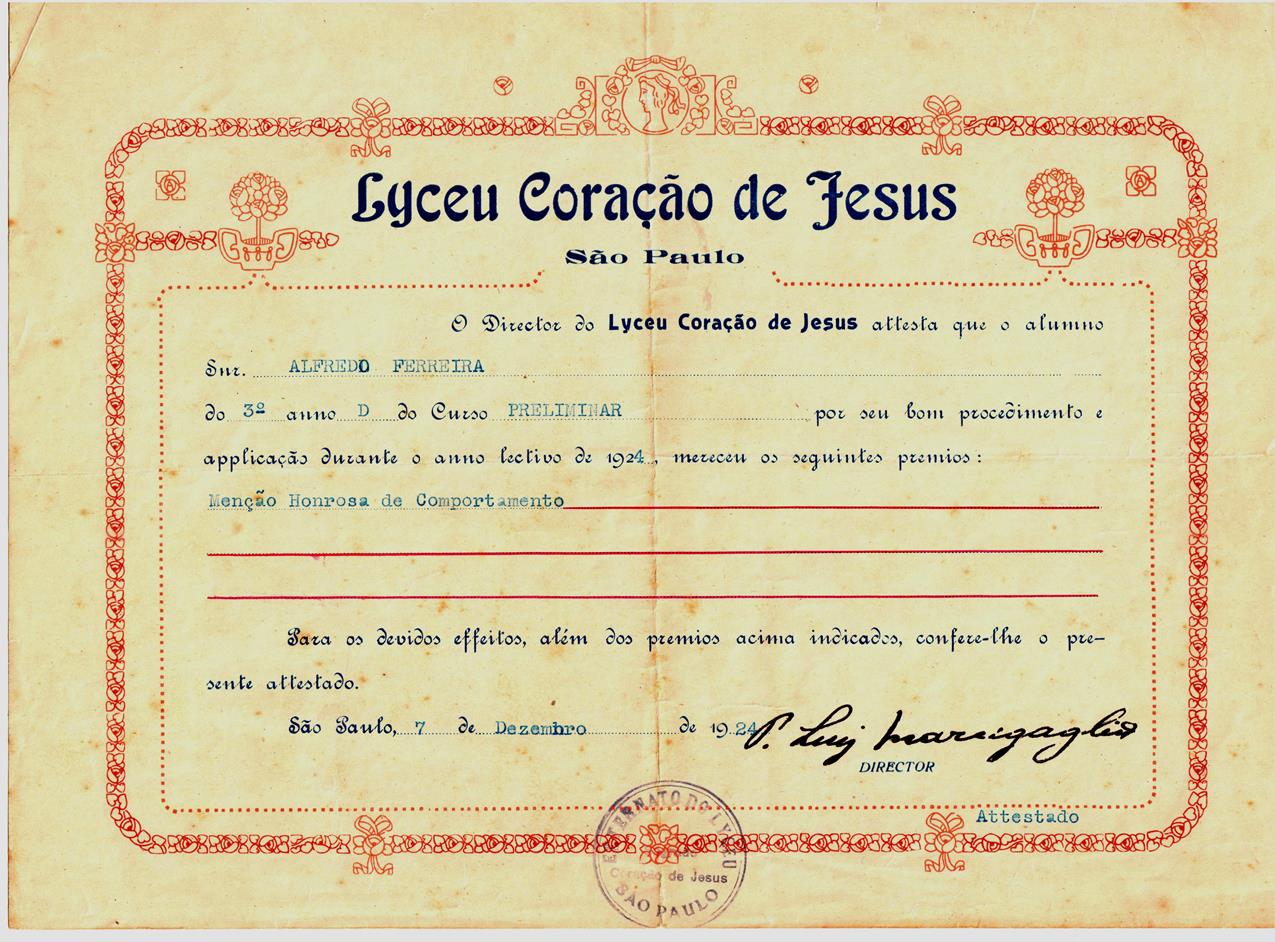 Lyceu Coração de Jesus
São Paulo
O Director do Lyceu Coração de Jesus attesta que o alumno
Snr. ALFREDO FERREIRA
do 3º anno D do Curso PRELIMINAR por seu bom procedimento e
applicação durante o anno lectivo de 1924, mereceu os seguintes premios:
Menção Honrosa de Comportamento
Para os devidos effeitos, além dos premios acima indicados, confere-lhe o pre-
sente attestado.
São Paulo, 7 de Dezembro de 1924
P. Luiz Marcigaglia
DIRECTOR
Attestado
EXTERNATO DO LYCEU
Coração de Jesus
SÃO PAULO